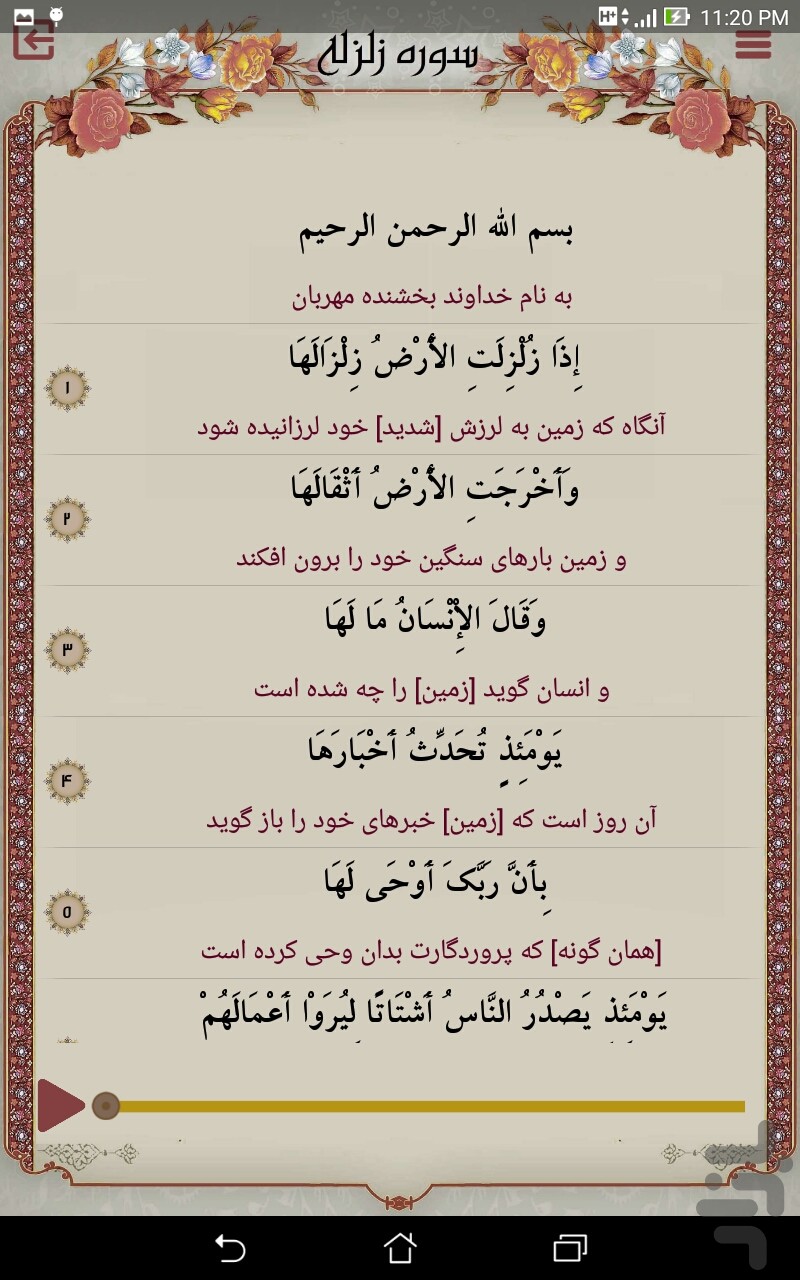 11:20 PM
سوره زلزله
بسم الله الرحمن الرحیم
به نام خداوند بخشنده مهربان
إِذَا زُلْزِلَتِ الأَرْضُ زِلْزَالَهَا
۱
آنگاه که زمین به لرزش [شدید] خود لرزانیده شود
وَأَخْرَجَتِ الأَرْضُ أَثْقَالَهَا
۲
و زمین بارهای سنگین خود را برون افکند
وَقَالَ الإِنْسَانُ مَا لَهَا
۳
و انسان گوید [زمین] را چه شده است
يَوْمَئِذٍ تُحَدِّثُ أَخْبَارَهَا
۴
آن روز است که [زمین] خبرهای خود را باز گوید
بِأَنَّ رَبَّکَ أَوْحَى لَهَا
۵
[همان گونه] که پروردگارت بدان وحی کرده است
يَوْمَئِذٍ يَصْدُرُ النَّاسُ أَشْتَاتًا لِيُرَوْا أَعْمَالَهُمْ
بازار